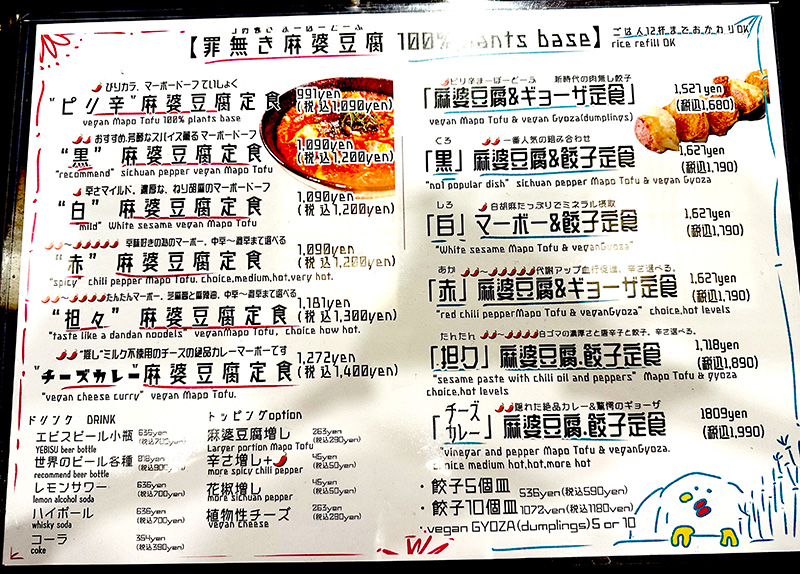 【罪無き麻婆豆腐 100% plants base】
ごはん12杯までおかわりOK
rice refill OK
ぴりカラ、マーボードーフていしょく
"ピリ辛"麻婆豆腐定食 991yen
(税込1,090yen)
vegan Mapo Tofu 100% plants base
おすすめ、芳醇なスパイス薫る マーボードーフ
"黒" 麻婆豆腐定食 1,090yen
(税込1,200yen)
"recommend" sichuan pepper vegan Mapo Tofu
辛さマイルド、濃厚な、ねり胡麻のマーボードーフ
"白" 麻婆豆腐定食 1,090yen
(税込1,200yen)
"mild" White sesame vegan Mapo Tofu
～ 辛味好きの為のマーボー、中辛～激辛まで選べる
"赤" 麻婆豆腐定食 1,090yen
(税込1,200yen)
"spicy" chili pepper Mapo Tofu. choice,medium,hot,very hot.
～ たんたんマーボー、芝麻醤と麻辣油、中辛～激辛まで選べる
"担々" 麻婆豆腐定食 1,181yen
(税込1,300yen)
"taste like a dandan noodels" veganMapo Tofu, choice how hot.
"推し"ミルク不使用のチーズの絶品カレーマーボーです
"チーズカレー"麻婆豆腐定食 1,272yen
(税込1,400yen)
"vegan cheese curry" vegan Mapo Tofu.
ドリンク DRINK
エビスビール小瓶 636yen
(税込700yen)
YEBISU beer bottle
世界のビール各種 818yen
(税込900yen)
recommend beer bottle
レモンサワー 636yen
(税込700yen)
lemon alcohol soda
ハイボール 636yen
(税込700yen)
whisky soda
コーラ 354yen
(税込390yen)
coke
トッピングoption
麻婆豆腐増し 263yen
(税込290yen)
Larger portion Mapo Tofu
辛さ増し+ 45yen
(税込50yen)
more spicy chili pepper
花椒増し 45yen
(税込50yen)
more sichuan pepper
植物性チーズ 263yen
(税込290yen)
vegan cheese
ピリ辛まーぼーどーふ 新時代の肉無し餃子
「麻婆豆腐&ギョーザ定食」 1,527yen
(税込1,680)
vegan Mapo Tofu & vegan Gyoza(dumplings)
くろ 一番人気の組み合わせ
「黒」麻婆豆腐&餃子定食 1,627yen
(税込1,790)
"no1 popular dish" sichuan pepper Mapo Tofu & vegan Gyoza
しろ 白胡麻たっぷりでミネラル摂取
「白」マーボー&餃子定食 1,627yen
(税込1,790)
"White sesame Mapo Tofu & veganGyoza"
あか ～ 代謝アップ血行促進、辛さ選べる。
「赤」麻婆豆腐&ギョーザ定食 1,627yen
(税込1,790)
"red chili pepperMapo Tofu & veganGyoza" choice,hot levels
たんたん ～ 白ゴマの濃厚さと唐辛子と餃子。辛さ選べる。
「担々」麻婆豆腐.餃子定食 1,718yen
(税込1,890)
"sesame paste with chili oil and peppers" Mapo Tofu & gyoza
choice,hot levels
隠れた絶品カレー&驚愕のギョーザ
「チーズカレー」麻婆豆腐.餃子定食 1809yen
(税込1,990)
"vinegar and pepper Mapo Tofu & veganGyoza.
choice medium hot,hot,more hot
・餃子5個皿 536yen(税込590yen)
・餃子10個皿 1072yen(税込1180yen)
・vegan GYOZA(dumplings)5 or 10